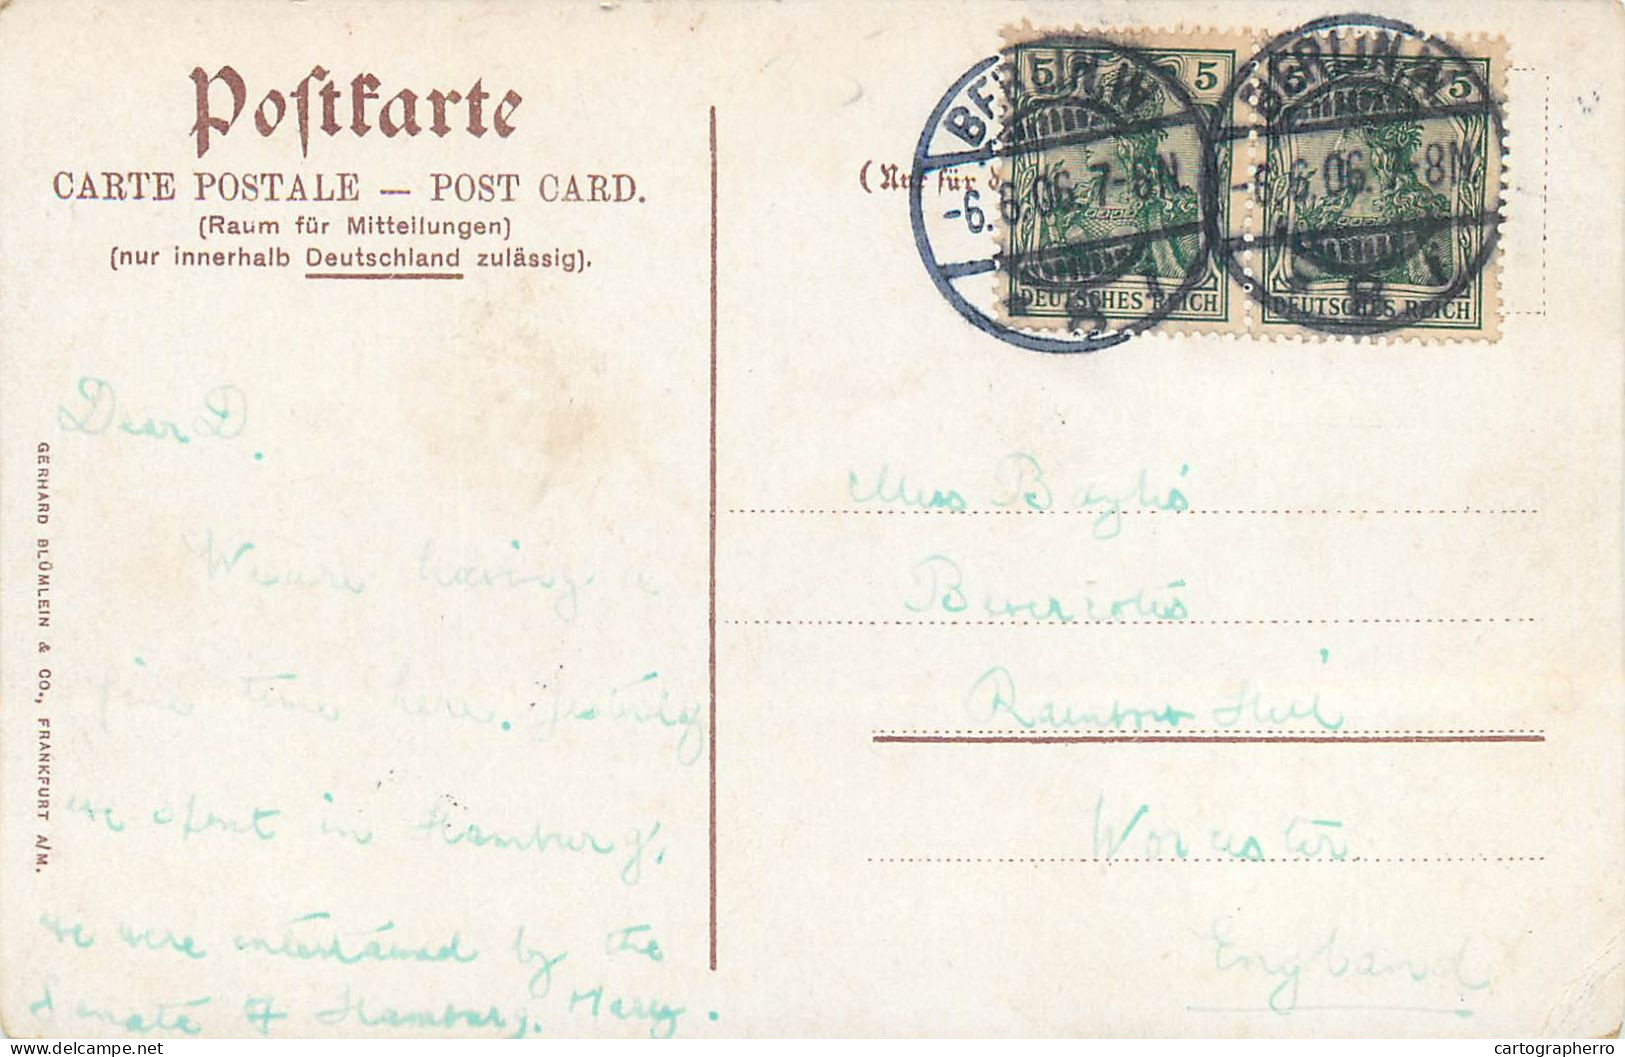 Postkarte
CARTE POSTALE — POST CARD.
(Raum für Mitteilungen)
(nur innerhalb Deutschland zulässig).
GERHARD BLÜMLEIN & CO., FRANKFURT A/M.
Dear D.
We are having a
fine time here. Yesterday
we spent in Hamburg,
we were entertained by the
Senate of Hamburg. Harry.
(Nur für
5 5
DEUTSCHES REICH
5 5
DEUTSCHES REICH
BERLIN W
-6.6.06.7-8N
BERLIN W
-6.6.06. -8N
Miss Baylis
Rainbow Hill
Worcester
England
delcampe.net
cartographerro